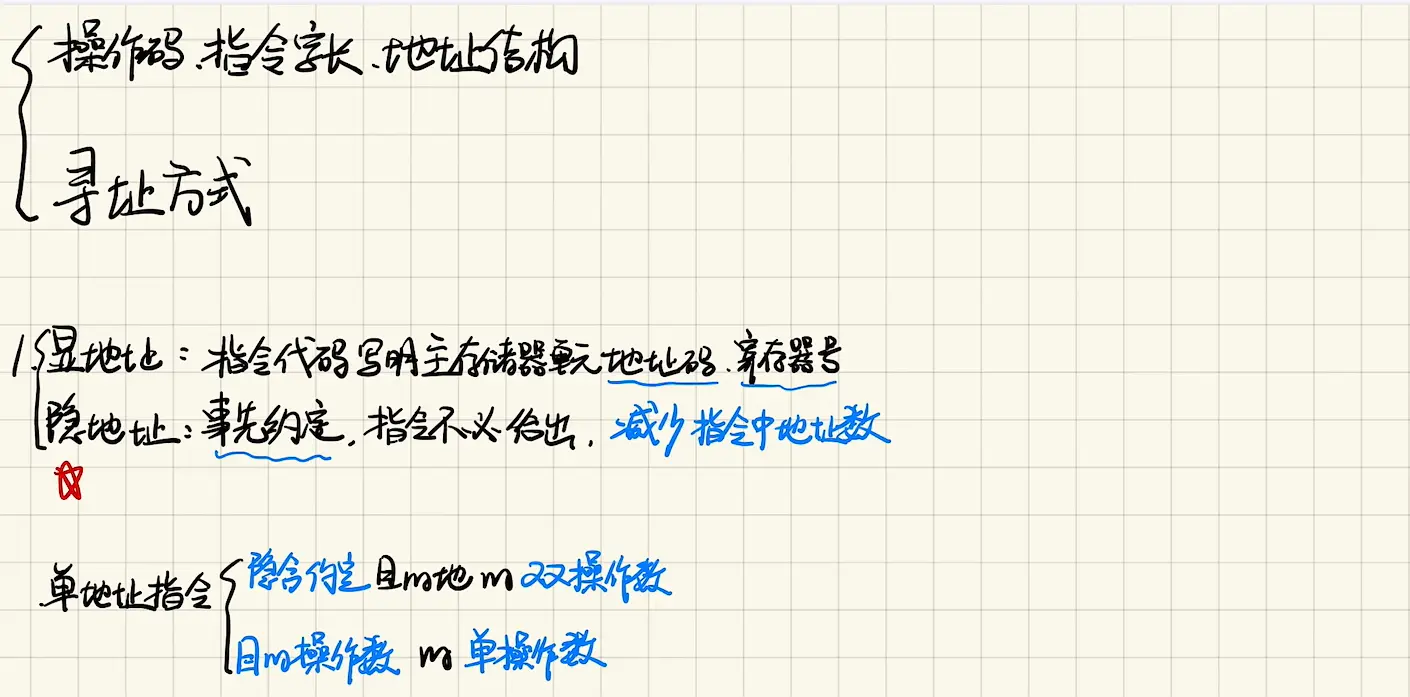 操作码、指令字长、地址结构
寻址方式
1. 显地址：指令代码写明主存储器单元地址码、寄存器号
隐地址：事先约定，指令不必给出，减少指令中地址数
单地址指令
隐含约定目的地的双操作数
目的操作数的单操作数